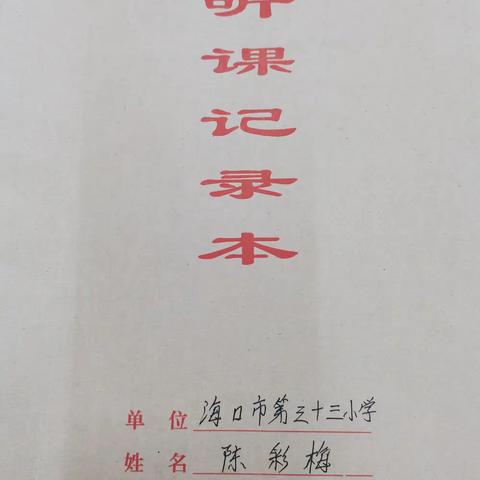 听课记录本
单位 海口市第三十三小学
姓名 陈彩梅